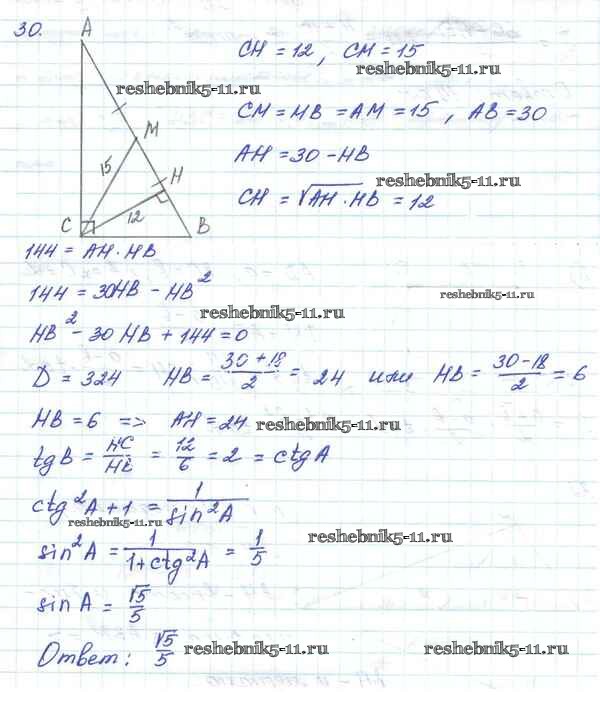 30.
A
M
H
15
12
C
B
CH = 12, CM = 15
reshebnik5-11.ru
reshebnik5-11.ru
CM = MB = AM = 15, AB = 30
AH = 30 - HB
reshebnik5-11.ru
CH = √AH · HB = 12
144 = AH · HB
144 = 30HB - HB²
reshebnik5-11.ru
reshebnik5-11.ru
HB² - 30HB + 144 = 0
D = 324 HB = (30 + 18)/2 = 24 или HB = (30 - 18)/2 = 6
HB = 6 => AH = 24
reshebnik5-11.ru
tg B = HC/HB = 12/6 = 2 = ctg A
ctg²A + 1 = 1/sin²A
reshebnik5-11.ru
sin²A = 1/(1 + ctg²A) = 1/5
reshebnik5-11.ru
sin A = √5/5
Ответ: √5/5
reshebnik5-11.ru
reshebnik5-11.ru